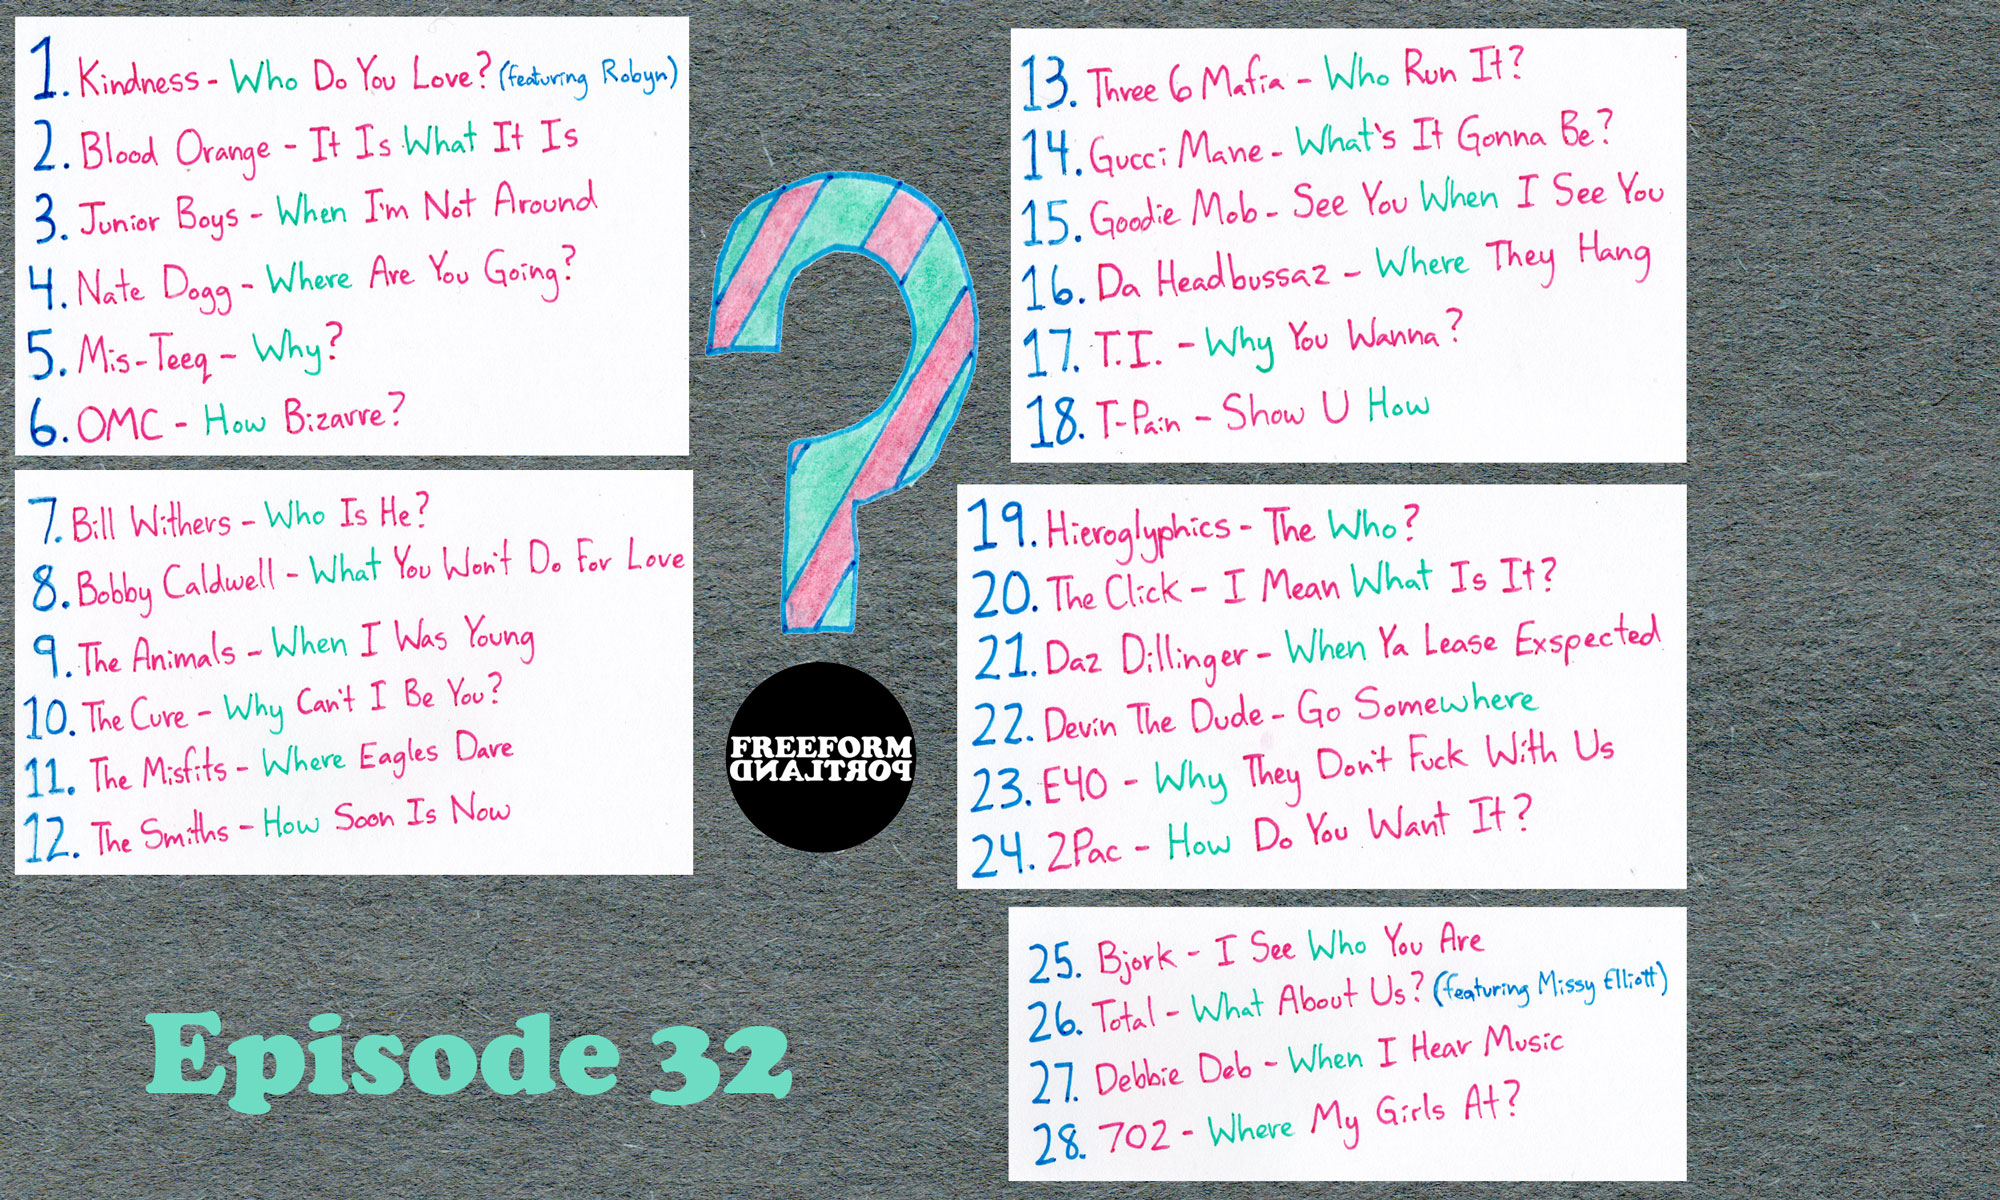 1. Kindness - Who Do You Love? (featuring Robyn)
2. Blood Orange - It Is What It Is
3. Junior Boys - When I'm Not Around
4. Nate Dogg - Where Are You Going?
5. Mis-Teeq - Why?
6. OMC - How Bizarre?
7. Bill Withers - Who Is He?
8. Bobby Caldwell - What You Won't Do For Love
9. The Animals - When I Was Young
10. The Cure - Why Can't I Be You?
11. The Misfits - Where Eagles Dare
12. The Smiths - How Soon Is Now
Episode 32
FREEFORM
PORTLAND
13. Three 6 Mafia - Who Run It?
14. Gucci Mane - What's It Gonna Be?
15. Goodie Mob - See You When I See You
16. Da Headbussaz - Where They Hang
17. T.I. - Why You Wanna?
18. T-Pain - Show U How
19. Hieroglyphics - The Who?
20. The Click - I Mean What Is It?
21. Daz Dillinger - When Ya Lease Exspected
22. Devin The Dude - Go Somewhere
23. E40 - Why They Don't Fuck With Us
24. 2Pac - How Do You Want It?
25. Bjork - I See Who You Are
26. Total - What About Us? (featuring Missy Elliott)
27. Debbie Deb - When I Hear Music
28. 702 - Where My Girls At?